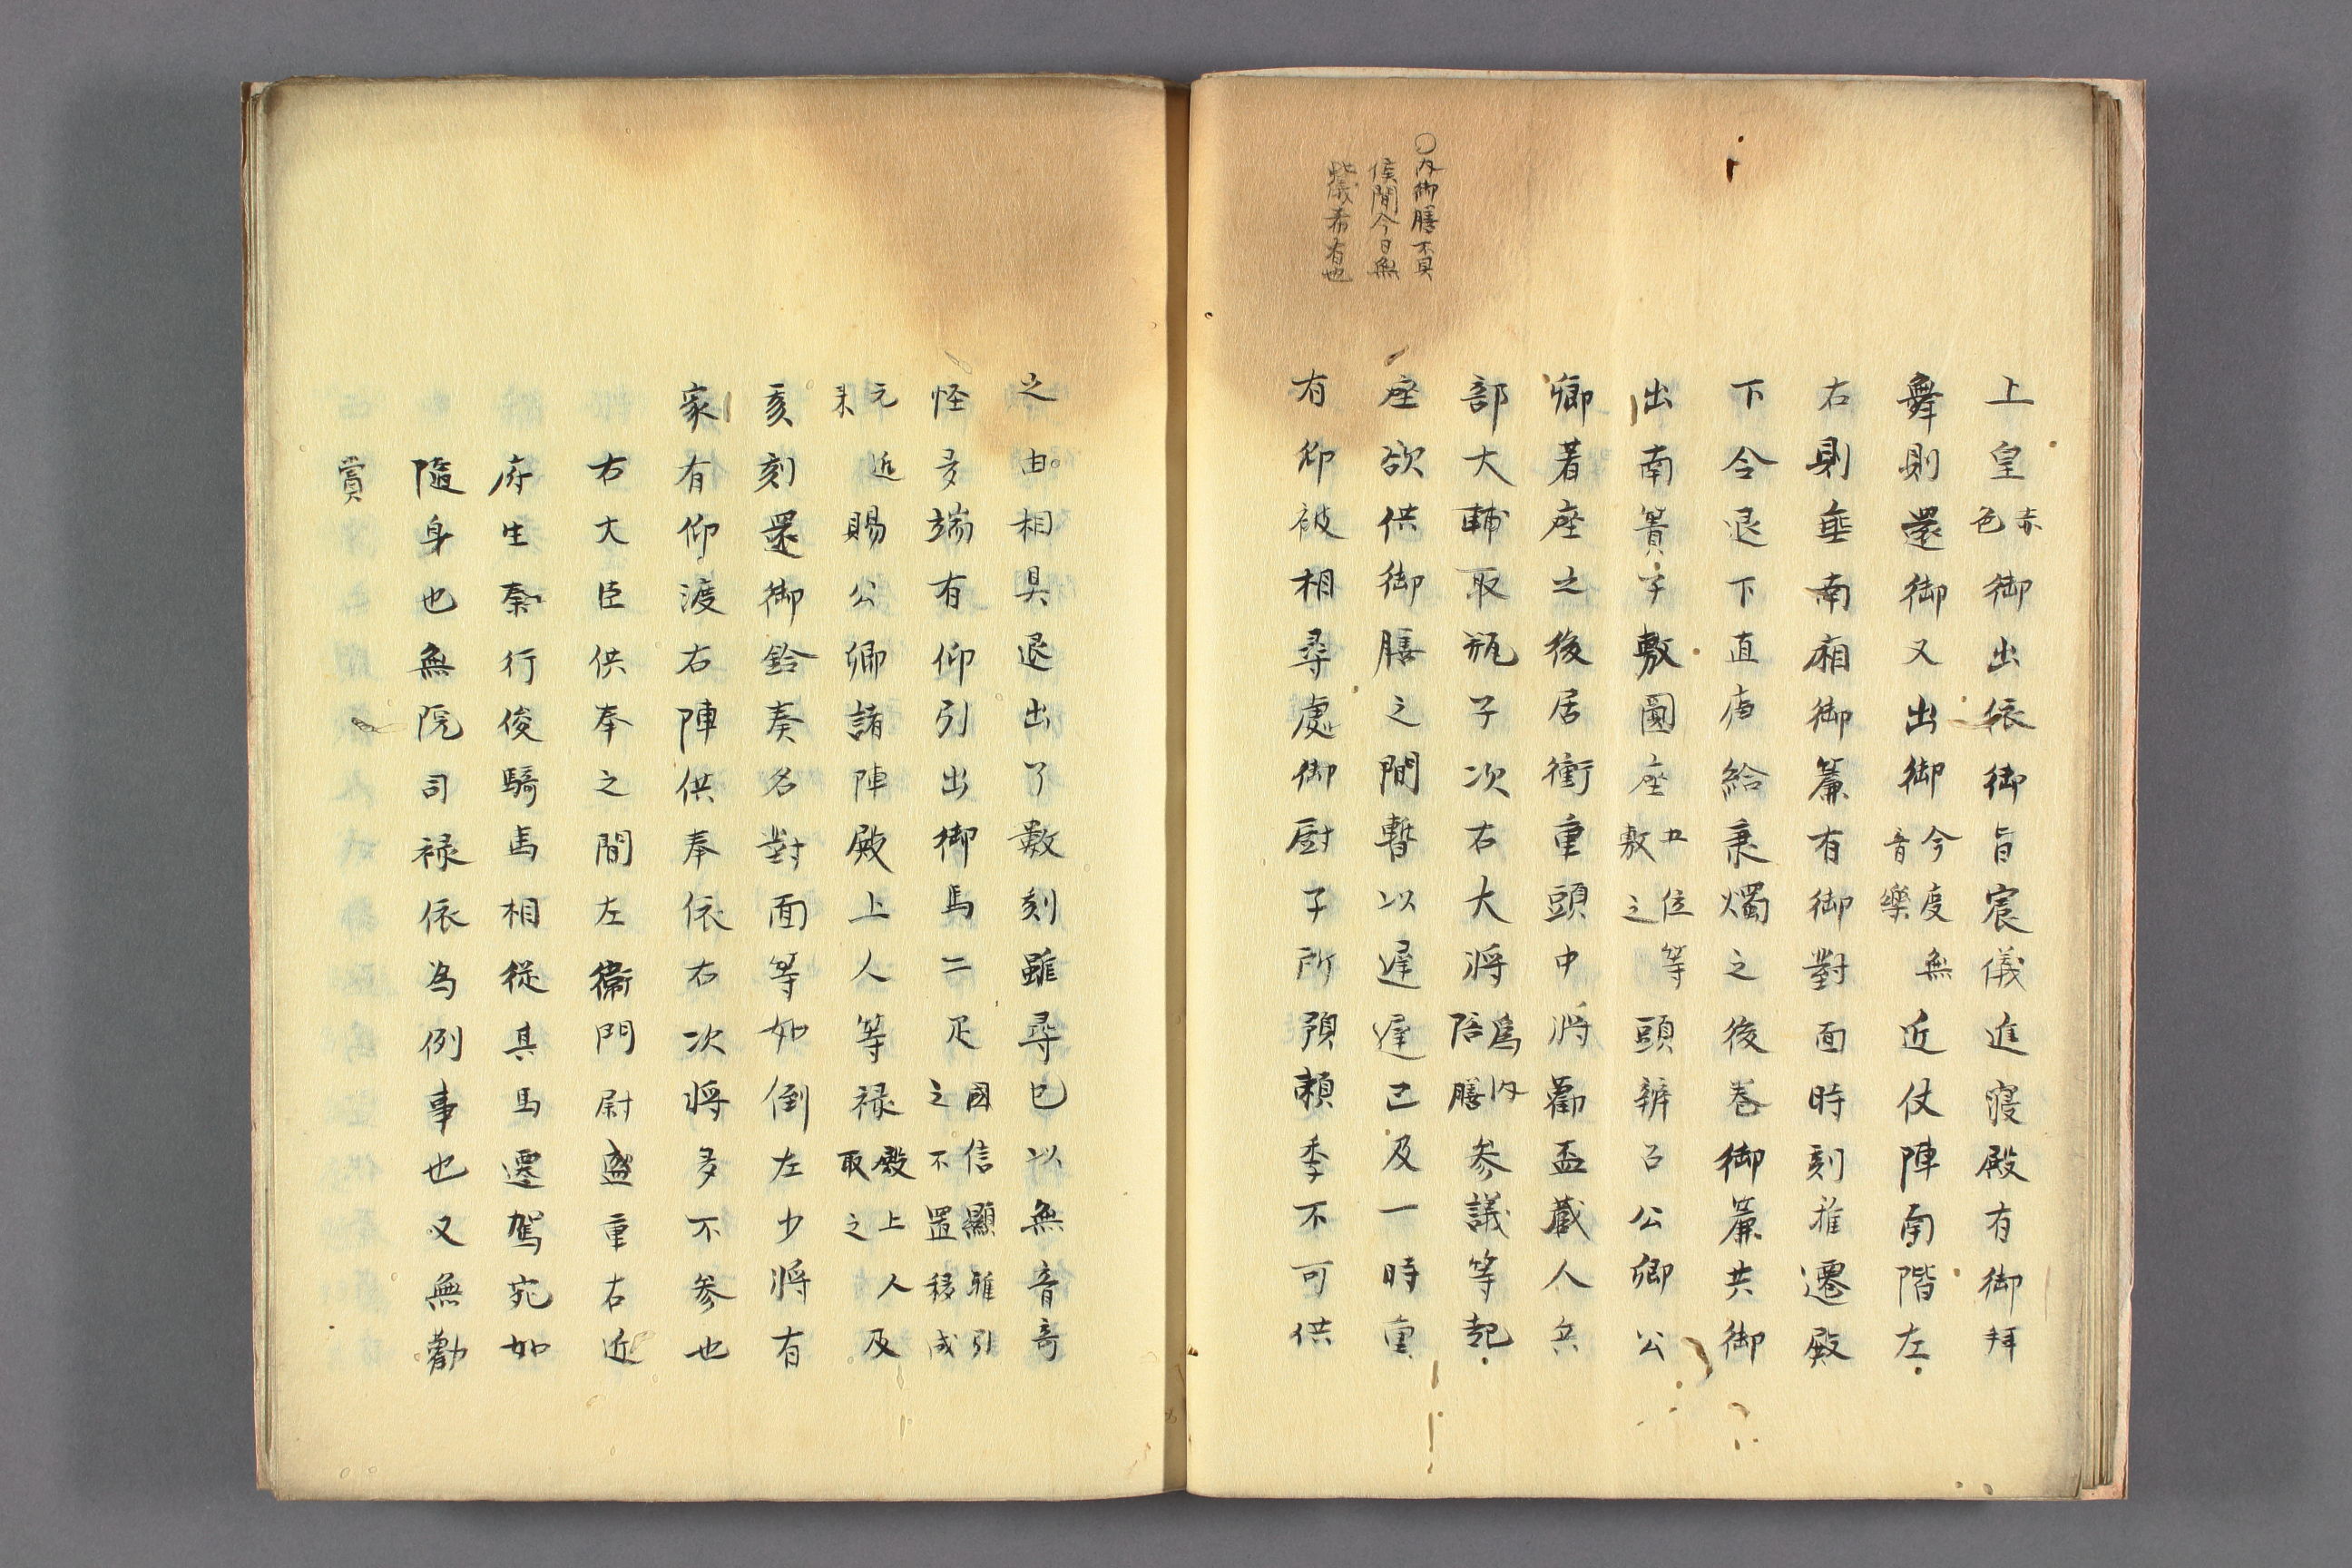 ○内御膳不具
候間今日無
此儀希有也
上皇赤色御出依御旨宸儀進寝殿有御拜
舞則還御又出御今度無音樂近仗陣南階左
右則垂南廂御簾有御對面時刻推遷殿
下令退下直廬給秉燭之後巻御簾共御
出南簀子敷圓座五位等敷之頭辨召公卿公
卿著座之後居衝重頭中將勸盃蔵人兵
部大輔取瓶子次右大將為内陪膳参議等起
座欲供御膳之間暫以遅遅已及一時重
有仰被相尋處御厨子所預頼季不可供
之由相具退出了數刻雖尋已以無音奇
怪多端有仰引出御馬二疋國信顯雅引之不置移
元近未賜公卿諸陣殿上人等禄殿上人及取之
亥刻還御鈴奏名對面等如倒左少將有
家有仰渡右陣供奉依右次將多不参也
右大臣供奉之間左衞門尉盛重右近
府生秦行俊騎馬相從其馬遷駕宛如
隨身也無院司禄依為例事也又無勸
賞